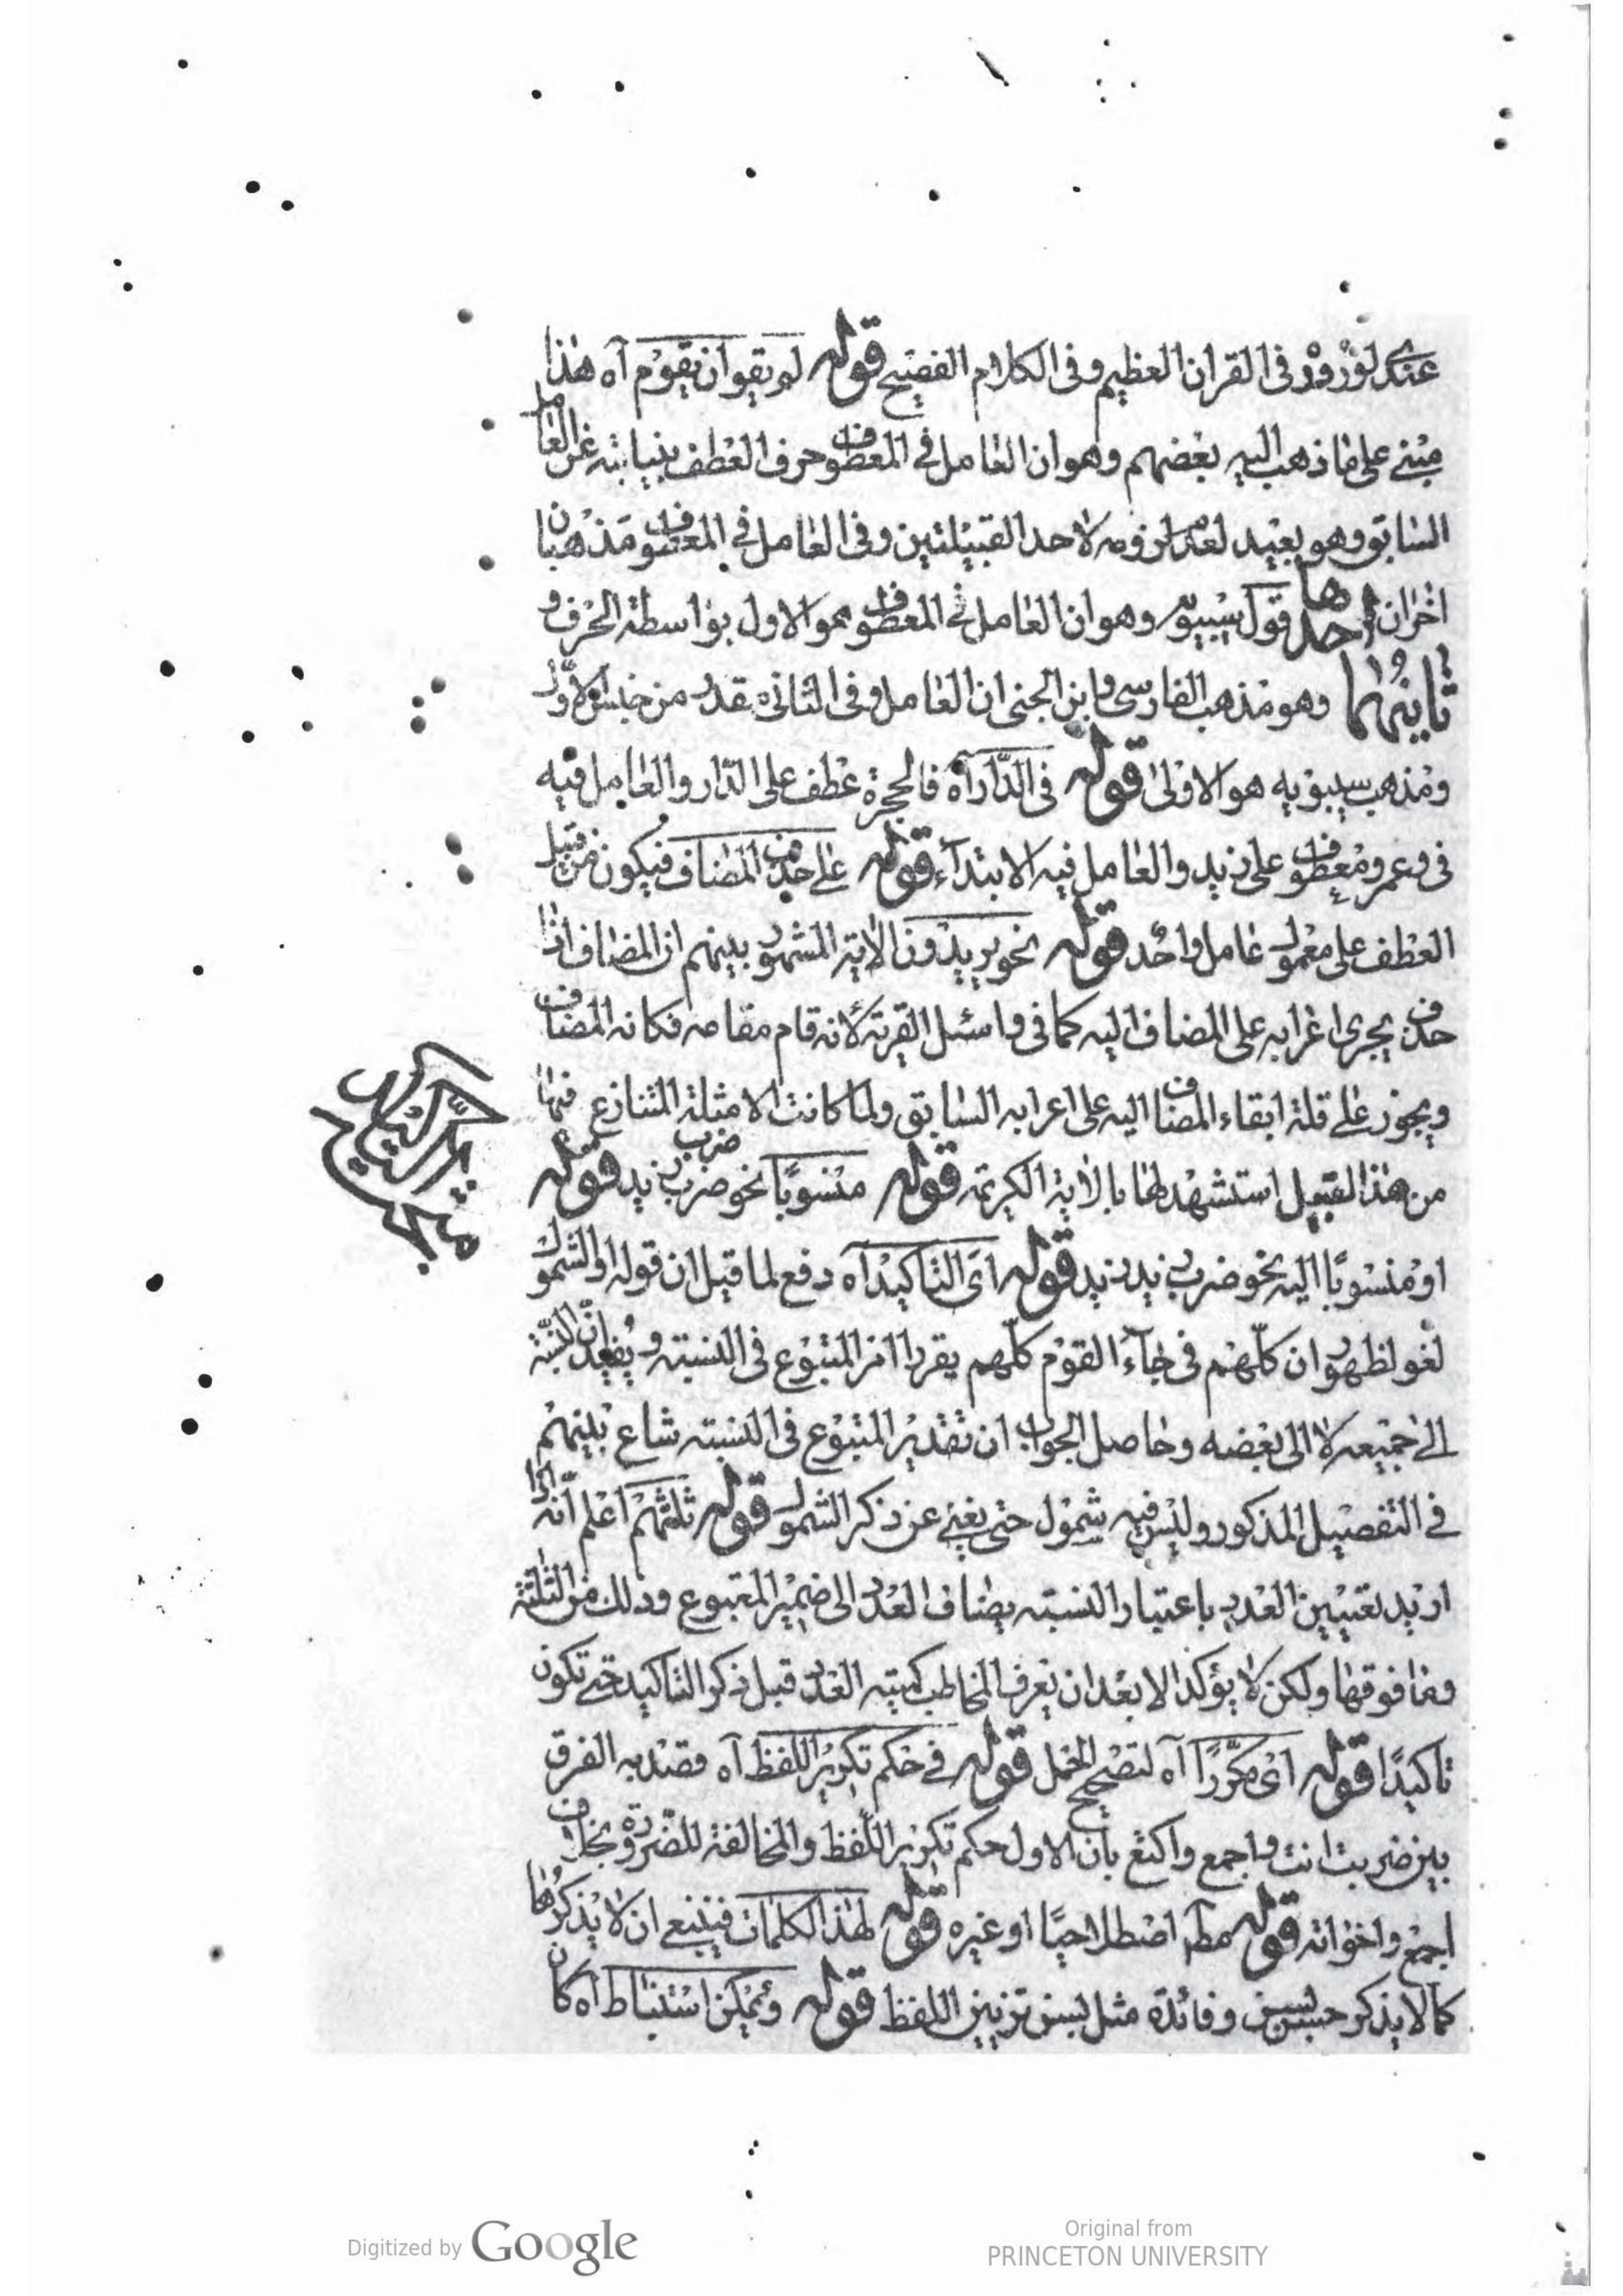 عندى لوروده فى القران العظيم وفى الكلام الفصيح قوله لم يقو ان يقوم آه هذا
مبنے على ما ذهب اليه بعضهم وهو ان العامل فے المعطوف حرف العطف بنيابته عن العامل
السابق وهو بعيد لعدم لزومه لاحد القبيلتين وفى العامل فے المعطوف مذهبان
اخران احدها قول سيبويه وهو ان العامل فے المعطوف هو الاول بواسطة الحرف و
ثانيهما وهو مذهب الفارسى وابن الجنى ان العامل فى الثانى مقدر من جنس الاول
ومذهب سيبويه هو الاولى قوله فى الدار آه فالحجرة عطف على الدار والعامل فيه
فى وعمرو معطوف على زيد والعامل فيه الابتداء قوله على حذف المضاف فيكون من قبيل
العطف على معمولى عامل واحد قوله نحو يريدون الاية المشهور بينهم ان المضاف اذا
حذف يجرى اعرابه على المضاف اليه كما فى واسئل القرية لانه قام مقامه فكانه المضاف
ويجوز على قلة ابقاء المضاف اليه على اعرابه السابق ولما كانت الامثلة المتنازع فيها
من هذا القبيل استشهد لها بالاية الكريمة قوله منسوبا نحو ضرب ضرب زيد قوله
او منسوبا اليه نحو ضرب زيد زيد قوله اى التاكيد آه دفع لما قيل ان قوله او الشمول
لغو لظهور ان كلهم فى جاء القوم كلهم يقرر امر المتبوع فى النسبة و يفيد ان النسبة
الى جميعه لا الى بعضه وحاصل الجواب ان تقدير المتبوع فى النسبة شاع بينهم
فے التفصيل المذكور وليس فيه شمول حتى يغنے عن ذكر الشمول قوله ثلثتهم اعلم انه اذا
اريد تعيين العدد باعتبار النسبة يضاف العدد الى ضمير المتبوع وذلك من الثلثة
وما فوقها ولكن لا يؤكد الا بعد ان يعرف المخاطب كمية العدد قبل ذكر التاكيد حتى تكون
تاكيدا قوله اى مكررا آه لتصحيح الحمل قوله فے حكم تكرير اللفظ آه قصد به الفرق
بين ضربت انت واجمع واكتع بان الاول حكم تكرير اللفظ والمخالفة للضرورة بخلاف
اجمع واخواته قوله مطـ اصطلاحيا او غيره قوله لهذا الكلمات فينبغى ان لا يذكرها
كما لا يذكر حسن بسن وفائدة مثل بسن تزيين اللفظ قوله ويمكن استنباط آه كان